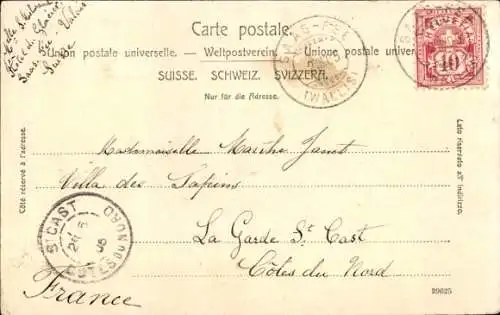 Carte postale.
Union postale universelle. — Weltpostverein. — Unione postale univer
SUISSE. SCHWEIZ. SVIZZERA.
Nur für die Adresse.
Hôtel du Glacier
Saas-Fée - Valais
Suisse
SAAS-FEE
(WALLIS)
HELVETIA
10
Côté réservé à l'adresse.
Lato riservato all' indirizzo.
Mademoiselle Marthe Janet
Villa des Sapins
La Garde St Cast
Côtes du Nord
France
ST CAST
26
COTES DU NORD
29625